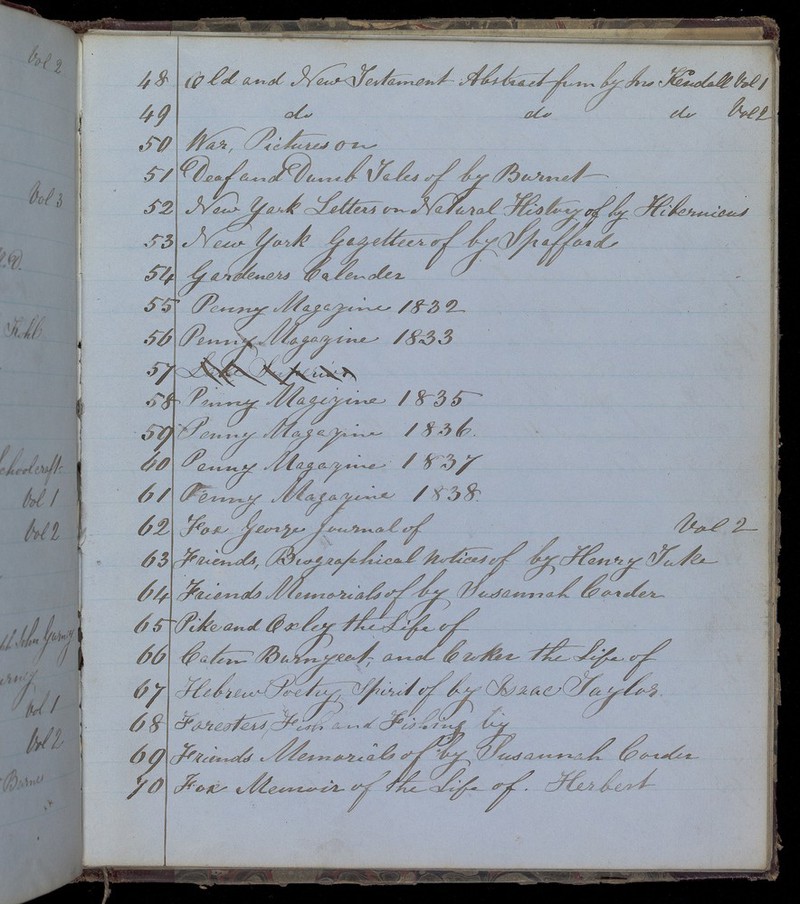 Vol 2
Vol 3
Schoolcraft
Vol 1
Vol 2
John Gurney
Vol 1
Vol 2
Barnes
48 Old and New Testament Abstract from by Jno Kendall Vol 1
49 do do do Vol 2
50 War, Pictures on
51 Deaf and Dumb Tales of by Burnet
52 New York Letters on Natural History of by Hibernicus
53 New York Gazetteer of by Spafford
54 Gardeners Calender
55 Penny Magazine 1832
56 Penny Magazine 1833
57 Lake Superior
58 Pinny Magizine 1835
59 Penny Magazine 1836.
60 Penny Magazine 1837
61 Penny Magazine 1838.
62 Fox George Journal of Vol 2
63 Friends, Biographical Notices of by Henry Tuke
64 Friends Memorials of by Susannah Corder
65 Pike and Oxley the Life of
66 Caton Burnyeat, and Croker the Life of
67 Hebrew Poetry, Spirit of by Isaac Taylor.
68 Foresters, Fish and Fishing by
69 Friends Memorials of by Susannah Corder
70 Fox Memoir of the Life of. Herbert